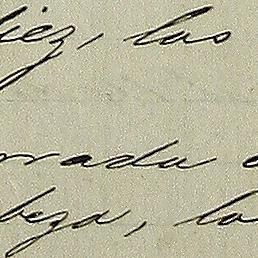 iez, las
rrada
beza, la